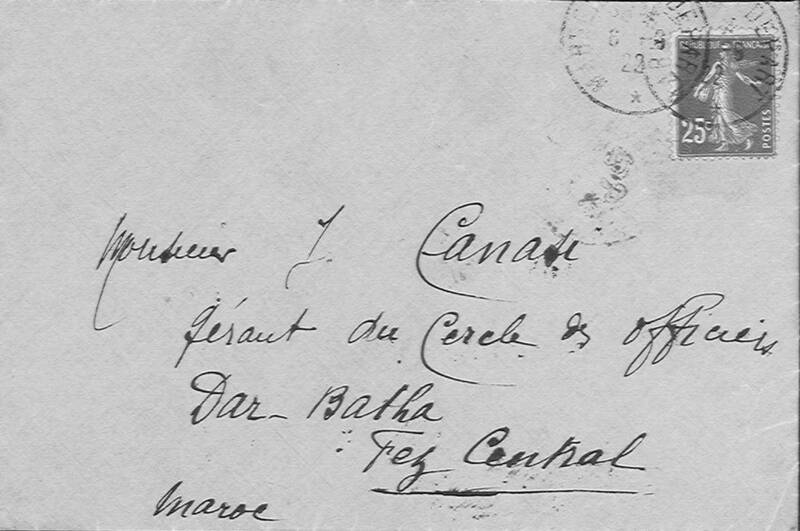 REPUBLIQUE FRANCAISE
25c
POSTES
Monsieur J. Canase
Gérant du Cercle des Officiers
Dar-Batha
Fez Central
Maroc